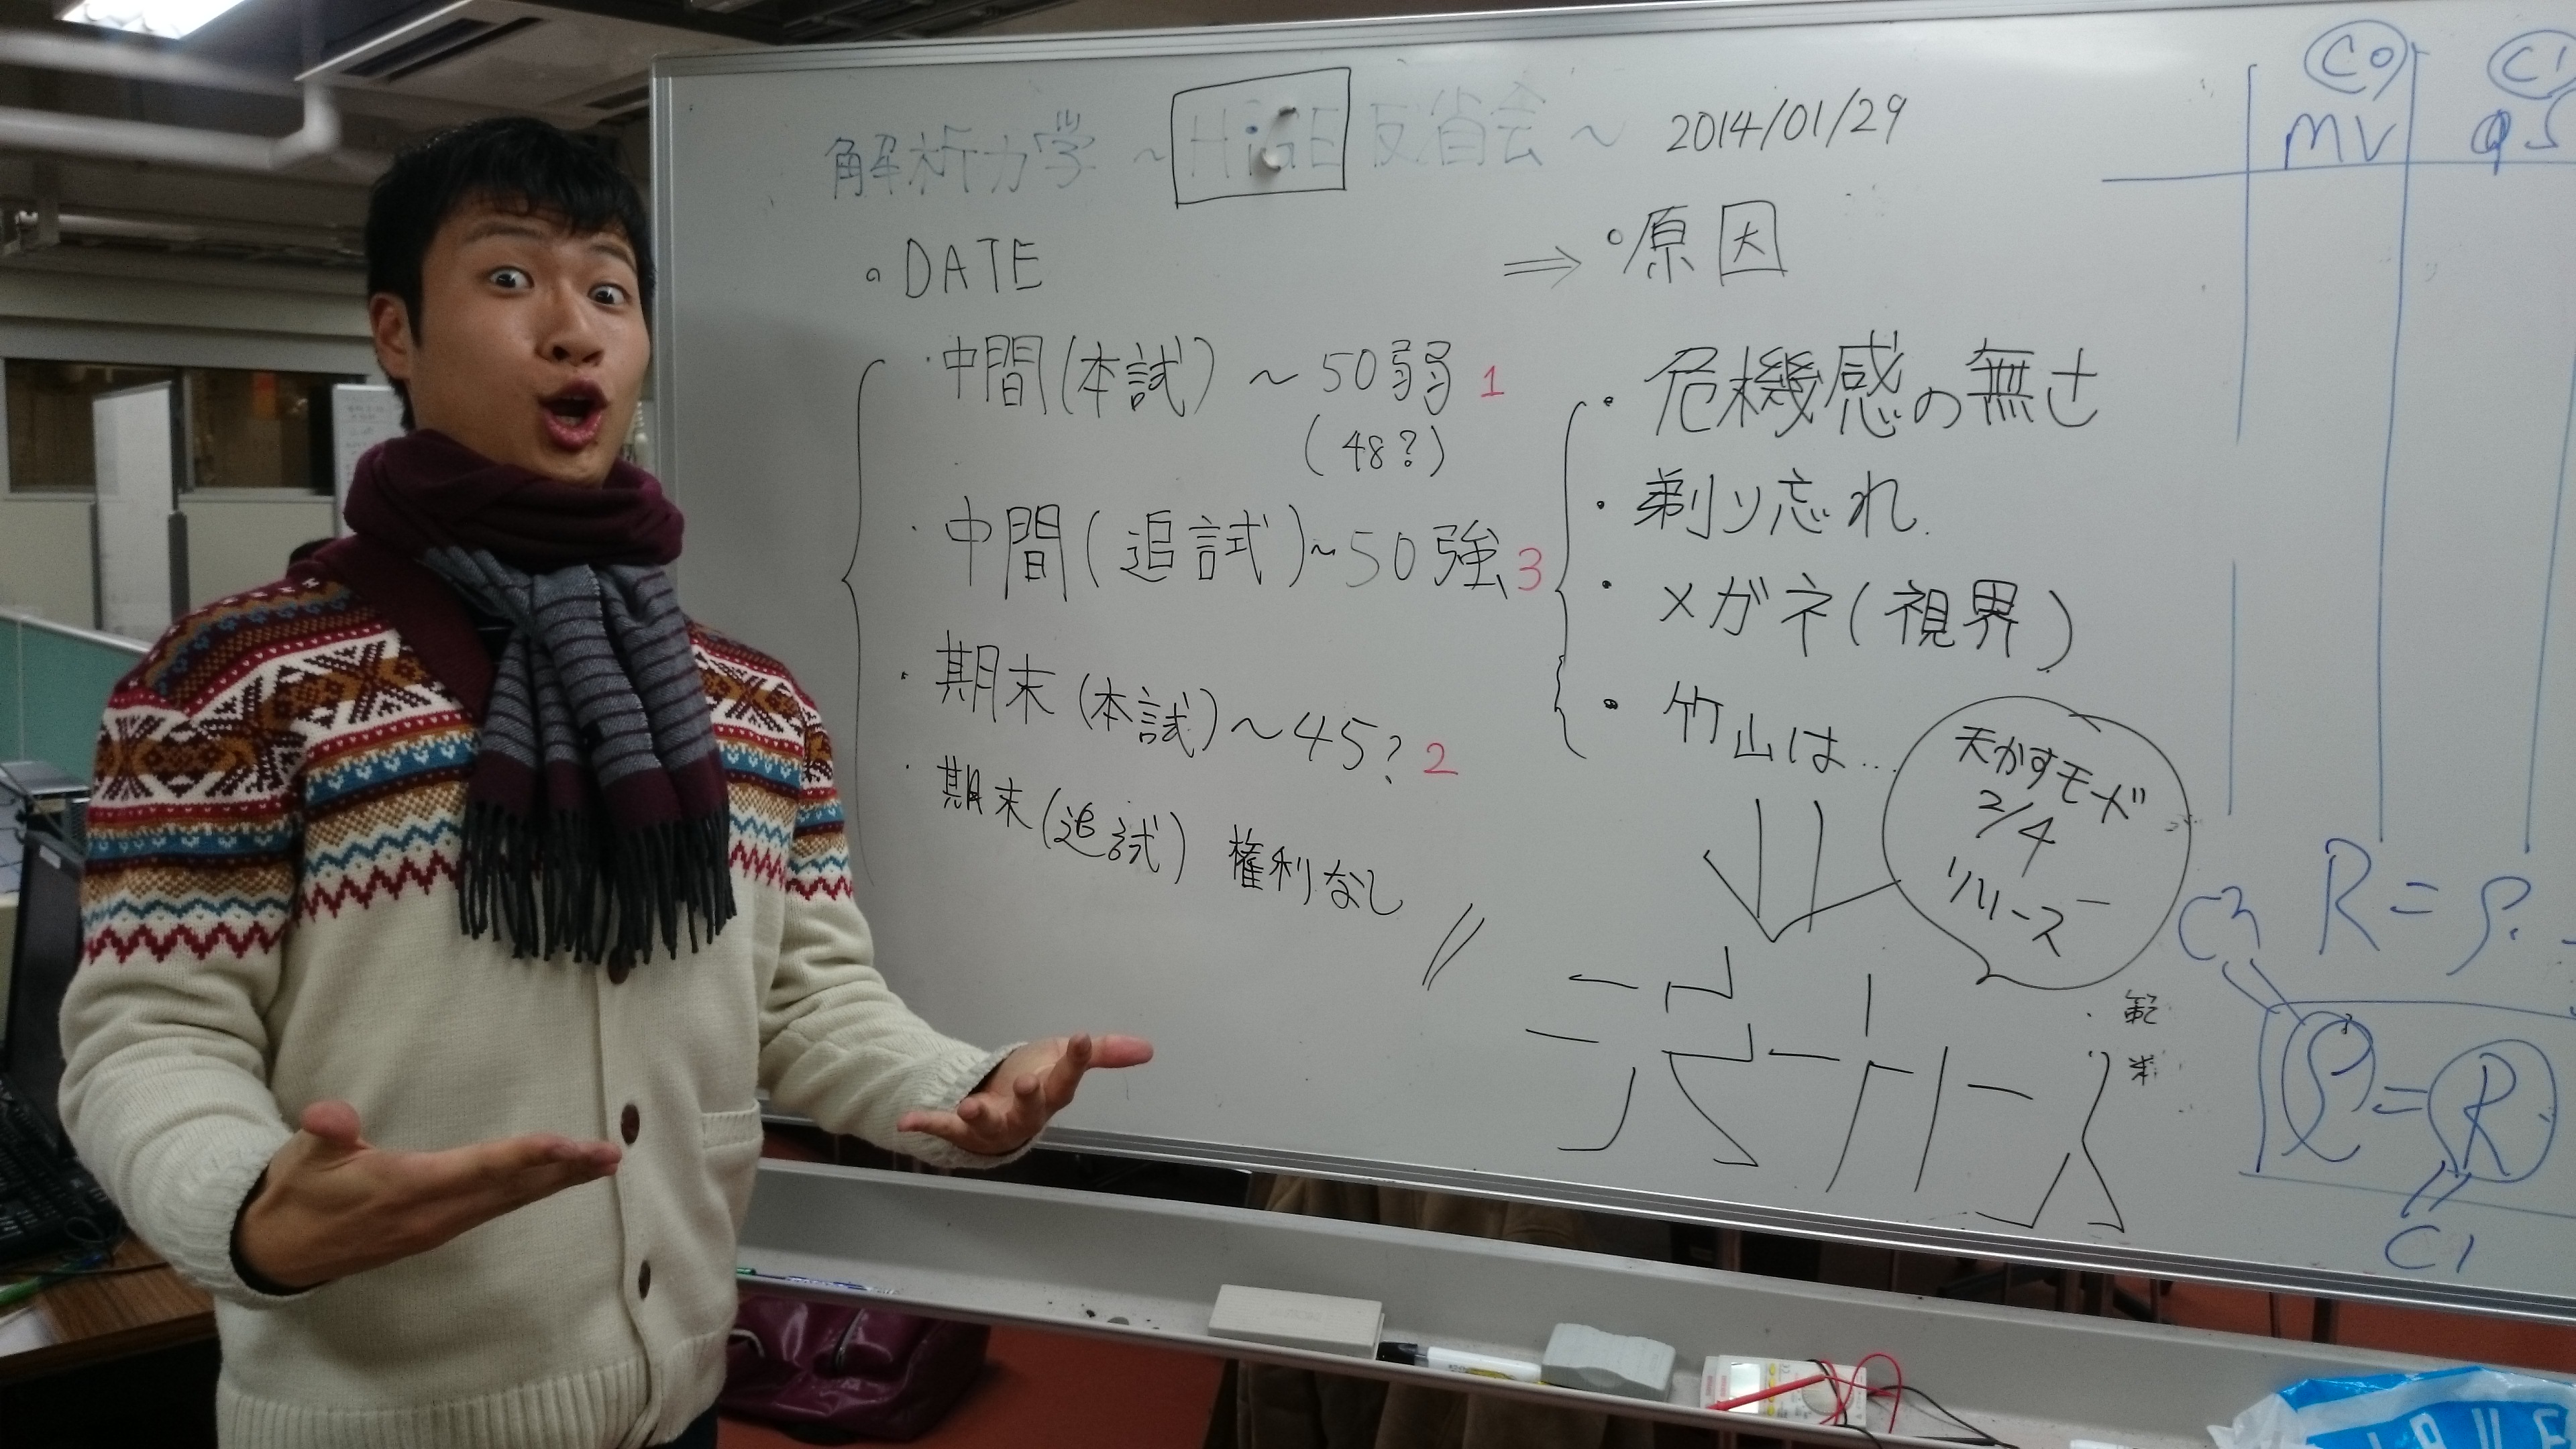 解析力学 ~ HiGE 反省会 ~ 2014/01/29
。DATE
・中間(本試) ~ 50弱 1
(48?)
・中間(追試)~50強 3
・期末(本試)~45? 2
・期末(追試) 権利なし
⇒ 。原因
・危機感の無さ
・剃り忘れ
・メガネ(視界)
・竹山は...
天かすモード
2/4
リリース
C0
MV
C1
R = ρ
ρ = R
C1